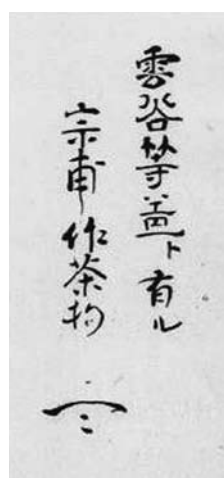 雲谷等益ト有ル
宗甫作茶杓